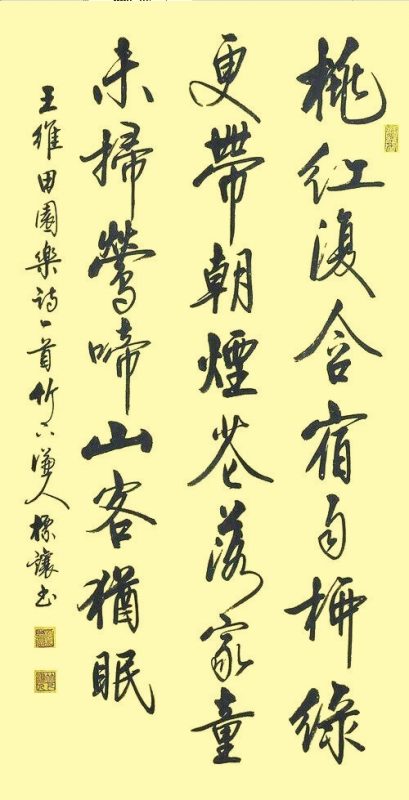 桃紅復含宿雨柳綠
更帶朝煙花落家童
未掃鶯啼山客猶眠
王維田園樂詩一首竹下謙人標讓书